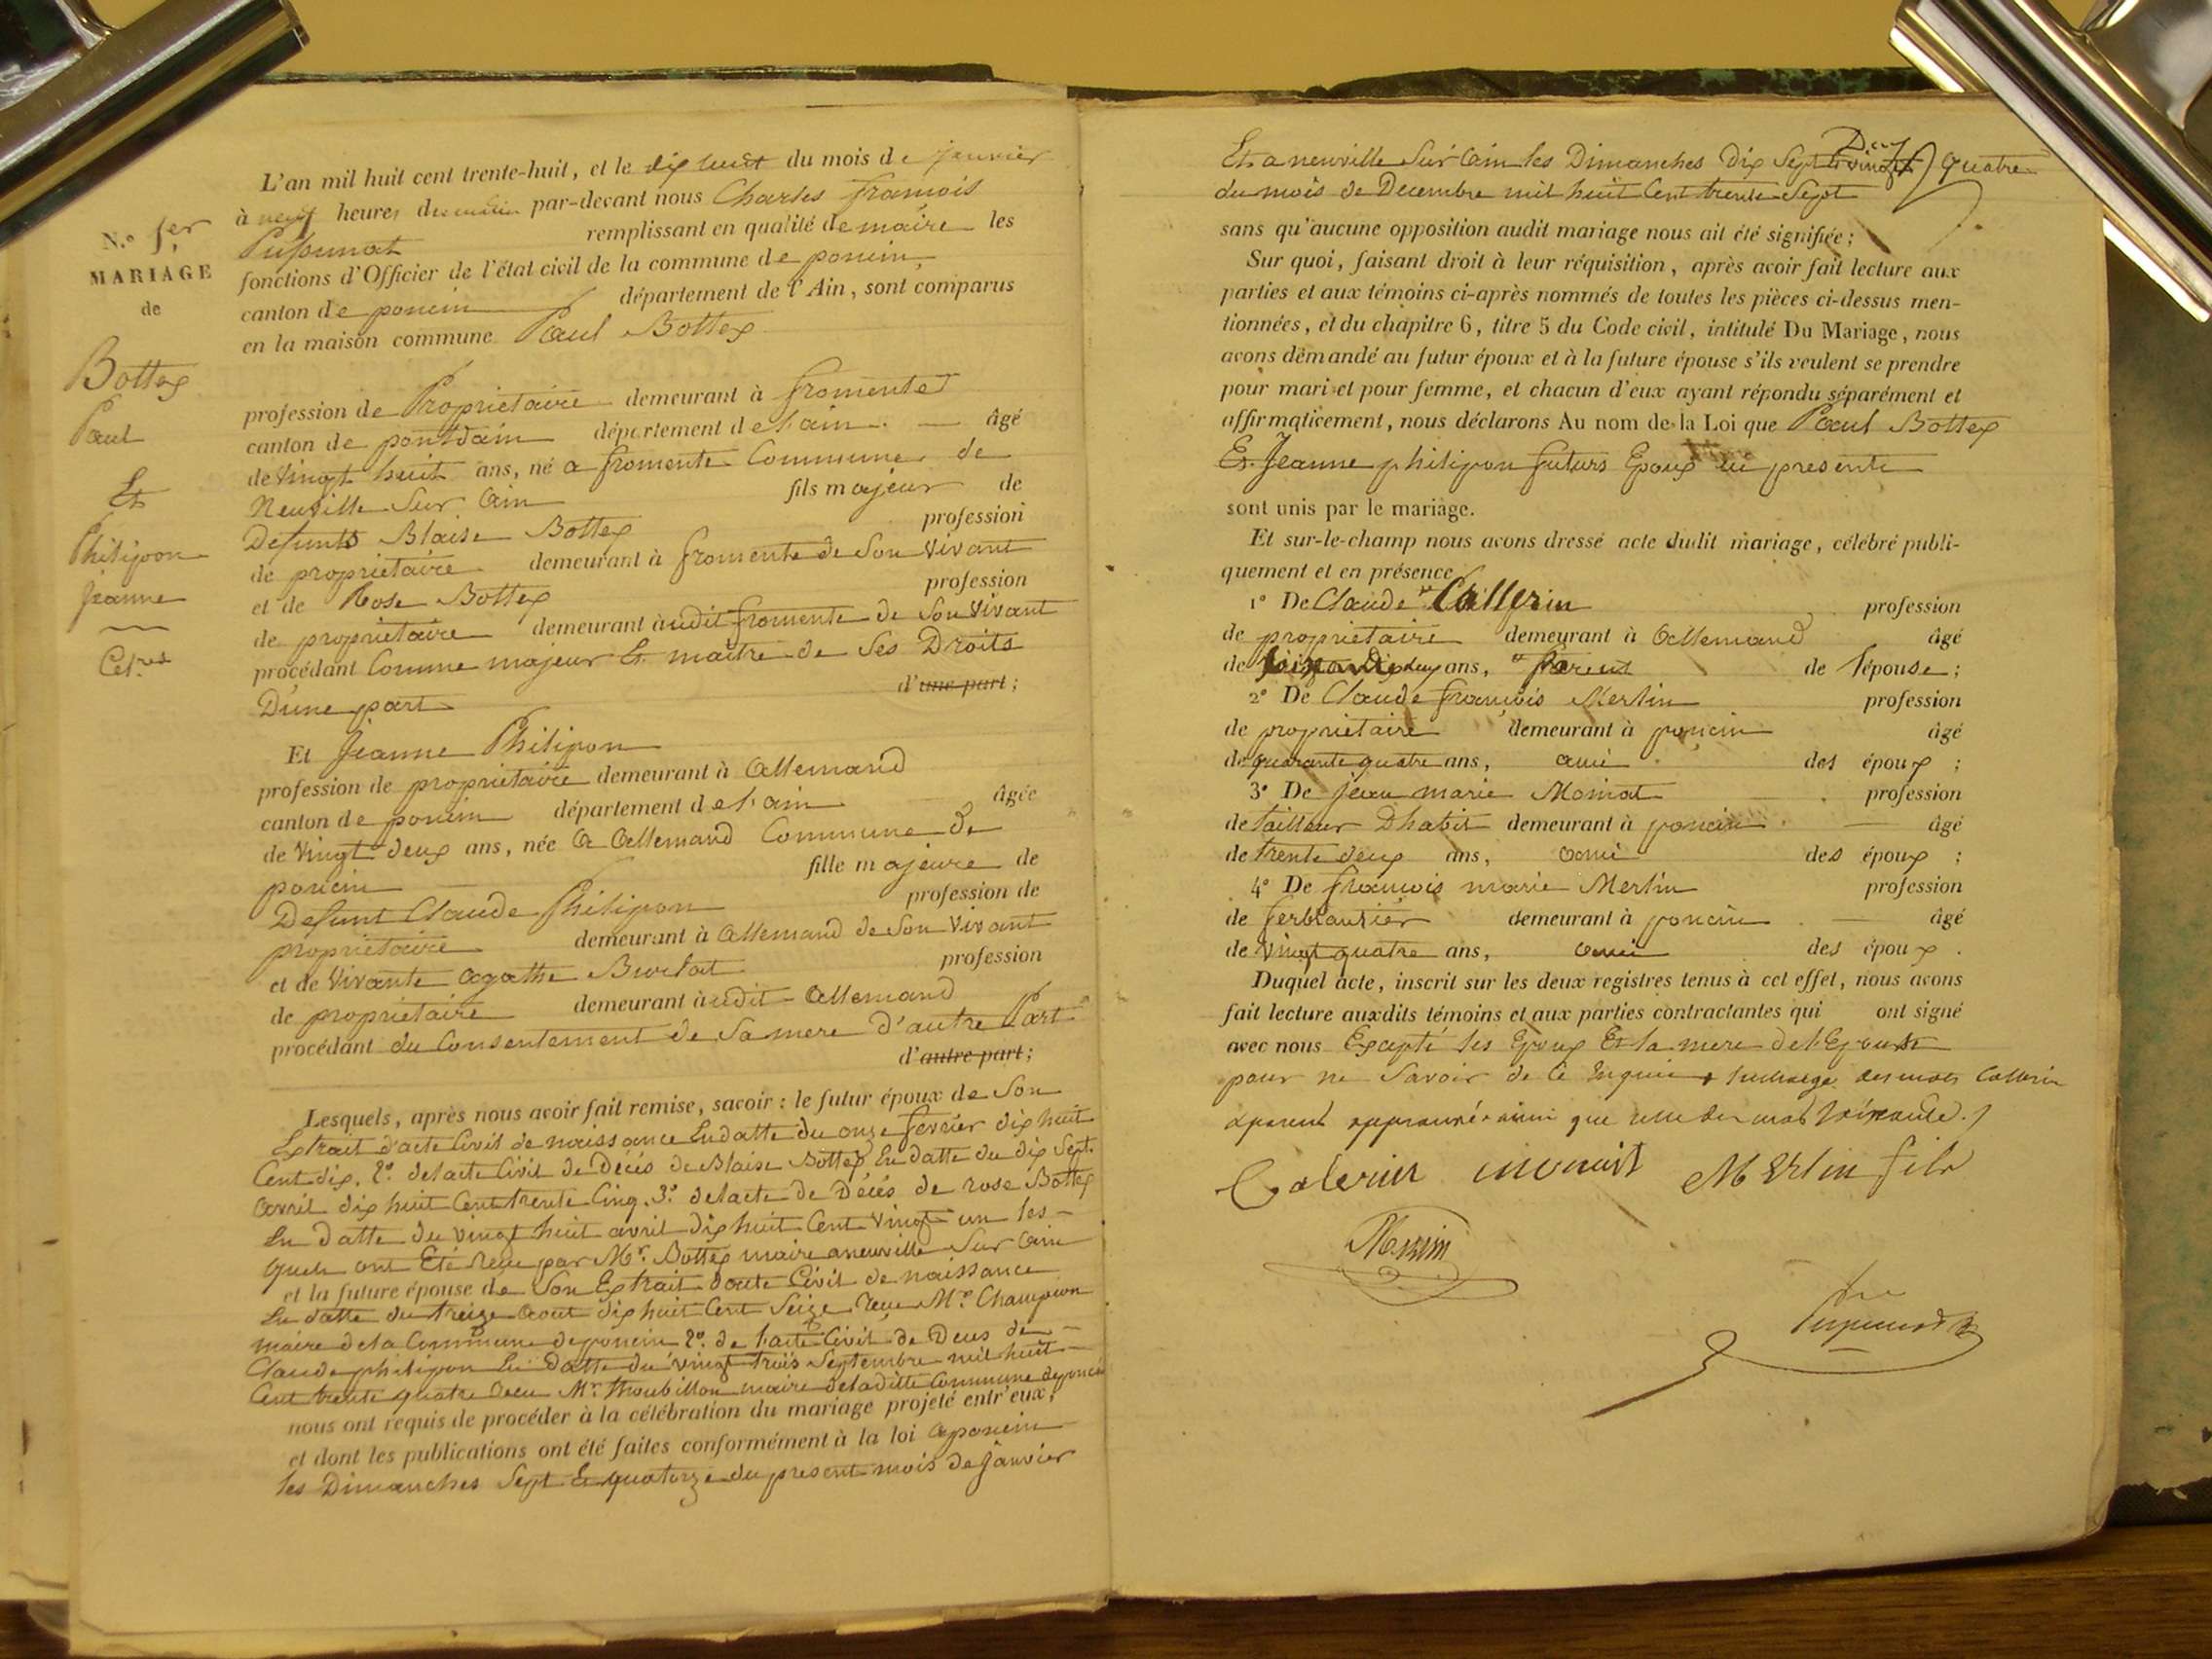 N.o 1er
MARIAGE
de
Bottex
Paul
Et
Philipon
Jeanne
L'an mil huit cent trente-huit, et le dix huit du mois de janvier
à neuf heures du matin par-devant nous Charles françois
remplissant en qualité de maire les
fonctions d'Officier de l'état civil de la commune de poncin,
canton de poncin département de l'Ain, sont comparus
en la maison commune Paul Bottex
profession de Propriétaire demeurant à fromente
canton de pontdain département de l'ain. âgé
de vingt huit ans, né a fromente Commune de
Neuville Sur Ain fils majeur de
Defunts Blaise Bottex profession
de propriétaire demeurant à fromente de Son Vivant
et de Rose Bottex profession
de propriétaire demeurant àudit fromente de Son Vivant
procédant Comme majeur Et maitre de Ses Droits
D'une part d'une part;
Et Jeanne Philipon
profession de propriétaire demeurant à Allemand
canton de poncin département de l'ain âgée
de vingt deux ans, née a Allemand Commune de
poncin fille majeure de
Defunt Claude Philipon profession de
propriétaire demeurant à Allemand de Son Vivant
et de Vivante agathe Burlat profession
de propriétaire demeurant àudit Allemand
procédant du Consentement de Sa mere D'autre Part
d'autre part;
Lesquels, après nous avoir fait remise, savoir : le futur époux de Son
Extrait d'acte Civil de naissance En datte du onze fevrier dix huit
Cent dix. 2o. de lacte Civil de Décés de Blaise Bottex En datte du dix Sept.
avril dix huit Cent trente Cinq. 3o. de lacte de Décés de rose Bottex
En datte du vingt huit avril dix huit Cent vingt un les-
quels ont Eté reçu par Mr. Bottex maire a neuville Sur ain
et la future épouse de Son Extrait d'acte Civil de naissance
En datte du treize aout dix huit Cent Seize reçu Mr. Champion
maire de la Commune de poncin 2o. de l'acte Civil de Deces de
Claude philipon En datte du vingt trois Septembre mil huit
Cent trente quatre recu Mr. Thoubillon maire de laditte Commune de poncin
nous ont requis de procéder à la célébration du mariage projeté entr'eux;
et dont les publications ont été faites conformément à la loi a poncin
les Dimanches Sept Et quatorze du present mois de Janvier
Et a neuville Sur ain les Dimanches Dix Sept Et vingt quatre
du mois de Decembre mil huit Cent trente Sept
sans qu'aucune opposition audit mariage nous ait été signifiée;
Sur quoi, faisant droit à leur réquisition, après avoir fait lecture aux
parties et aux témoins ci-après nommés de toutes les pièces ci-dessus men-
tionnées, et du chapitre 6, titre 5 du Code civil, intitulé Du Mariage, nous
avons demandé au futur époux et à la future épouse s'ils veulent se prendre
pour mari et pour femme, et chacun d'eux ayant répondu séparément et
affirmativement, nous déclarons Au nom de la Loi que Paul Bottex
Et Jeanne philipon futurs Epoux ici presente
sont unis par le mariage.
Et sur-le-champ nous avons dressé acte dudit mariage, célébré publi-
quement et en présence
1o De Claude Callerin profession
de propriétaire demeurant à Allemand âgé
de ans, parent de l'épouse;
2o De Claude françois Merlin profession
de propriétaire demeurant à poncin âgé
de quarante quatre ans, ami des époux;
3o De jean marie Moinat profession
de tailleur Dhabit demeurant à poncin âgé
de trente deux ans, ami des époux;
4o De françois marie Merlin profession
de ferblantier demeurant à poncin âgé
de vingt quatre ans, ami des époux.
Duquel acte, inscrit sur les deux registres tenus à cet effet, nous avons
fait lecture auxdits témoins et aux parties contractantes qui ont signé
avec nous Excepté les Epoux Et la mere de l'Epouse
pour ne Savoir de ce Enquis surcharge des mots Callerin
&parent approuvée ainsi que celle des mots soixante.
Calerin moinat Merlin fils
Merlin